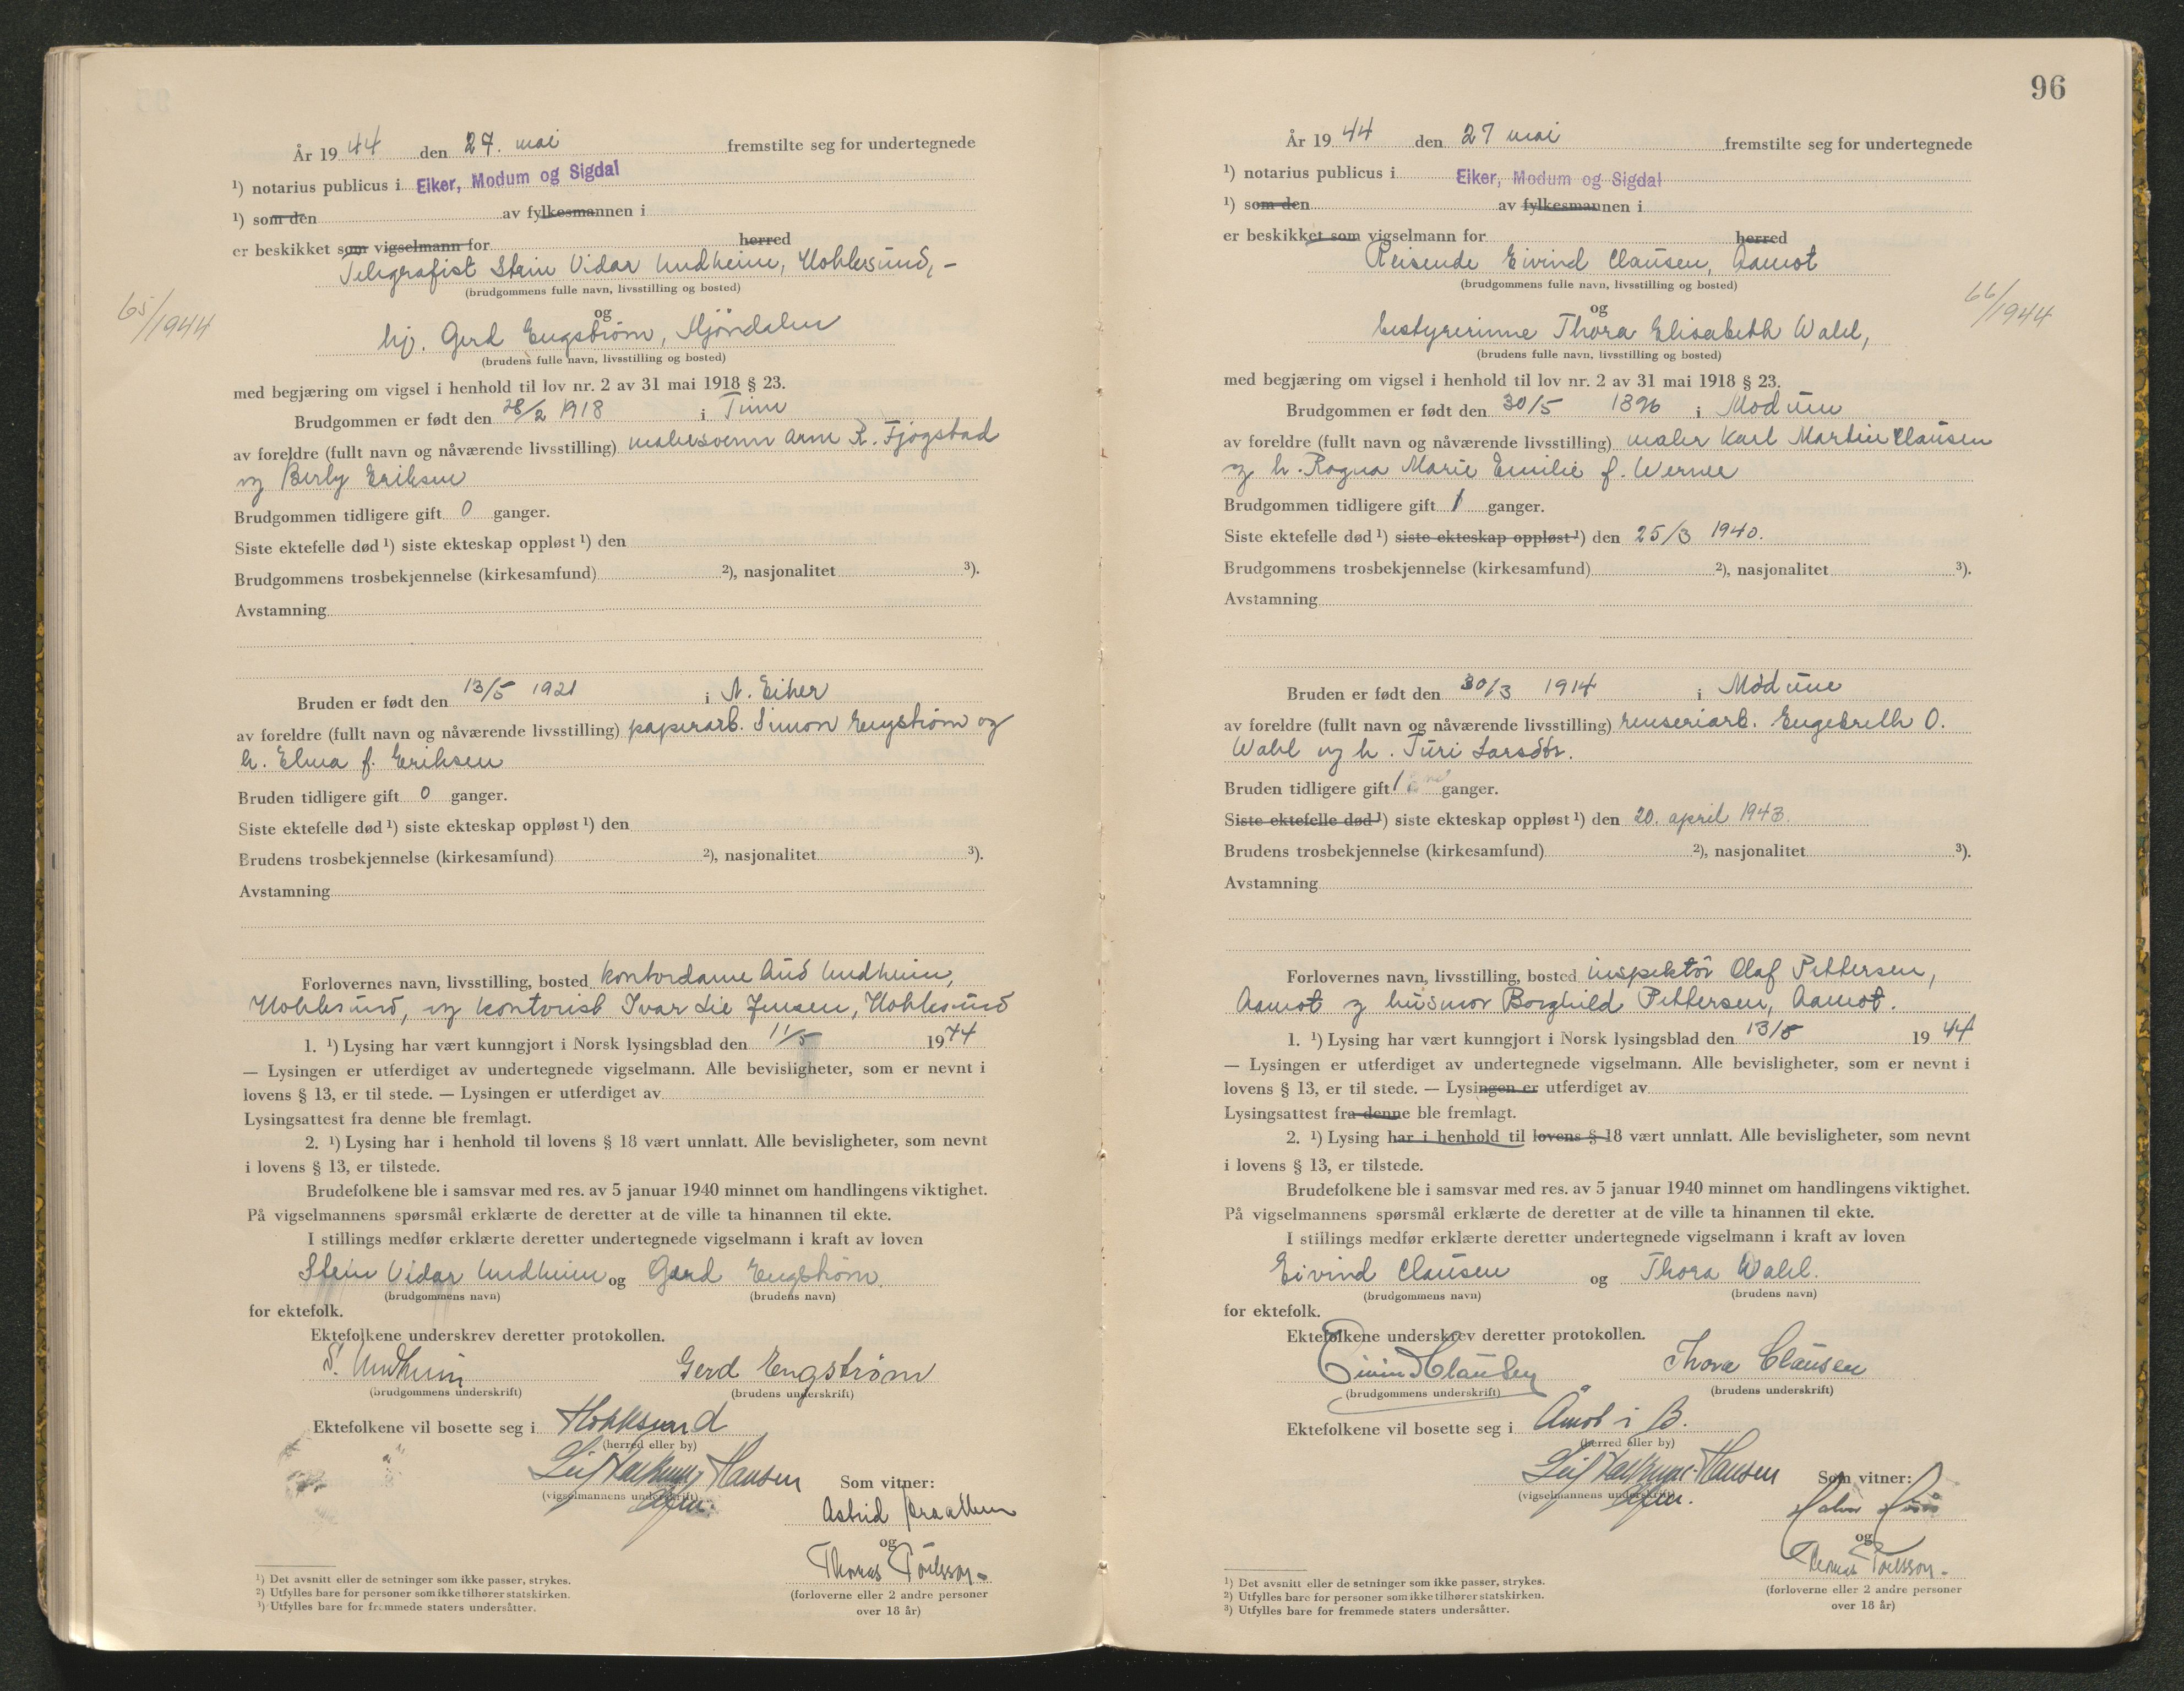 År 19 44 den 27. mai fremstilte seg for undertegnede
¹) notarius publicus i Eiker, Modum og Sigdal
¹) som den av fylkesmannen i
er beskikket som vigselmann for herred
Telegrafist Stein Vidar Undheim, Hokksund, -
(brudgommens fulle navn, livsstilling og bosted)
65/1944
og
hj. Gerd Engstrøm, Mjöndalen
(brudens fulle navn, livsstilling og bosted)
med begjæring om vigsel i henhold til lov nr. 2 av 31 mai 1918 § 23.
Brudgommen er født den 28/2 1918 i Time
av foreldre (fullt navn og nåværende livsstilling) malersvenn Arne R. Fjogstad
og Berly Eriksen
Brudgommen tidligere gift 0 ganger.
Siste ektefelle død ¹) siste ekteskap oppløst ¹) den
Brudgommens trosbekjennelse (kirkesamfund) ²), nasjonalitet ³).
Avstamning
Bruden er født den 13/5 1921 i N. Eiker
av foreldre (fullt navn og nåværende livsstilling) papirarb. Simon Engstrøm og
h. Elma f. Eriksen
Bruden tidligere gift 0 ganger.
Siste ektefelle død ¹) siste ekteskap oppløst ¹) den
Brudens trosbekjennelse (kirkesamfund) ²), nasjonalitet ³).
Avstamning
Forlovernes navn, livsstilling, bosted kontordame Aud Undheim,
Hokksund, og kontorist Ivar Lie Jensen, Hokksund
1. ¹) Lysing har vært kunngjort i Norsk lysingsblad den 11/5 1944
— Lysingen er utferdiget av undertegnede vigselmann. Alle bevisligheter, som er nevnt i
lovens § 13, er til stede. — Lysingen er utferdiget av
Lysingsattest fra denne ble fremlagt.
2. ¹) Lysing har i henhold til lovens § 18 vært unnlatt. Alle bevisligheter, som nevnt
i lovens § 13, er tilstede.
Brudefolkene ble i samsvar med res. av 5 januar 1940 minnet om handlingens viktighet.
På vigselmannens spørsmål erklærte de deretter at de ville ta hinannen til ekte.
I stillings medfør erklærte deretter undertegnede vigselmann i kraft av loven
Stein Vidar Undheim og Gerd Engstrøm.
(brudgommens navn) (brudens navn)
for ektefolk.
Ektefolkene underskrev deretter protokollen.
S. Undheim Gerd Engstrøm
(brudgommens underskrift) (brudens underskrift)
Ektefolkene vil bosette seg i Hokksund
(herred eller by)
Leif Hansen Som vitner:
(vigselmannens underskrift)
Astrid Braathen
og
Thomas
(forloverne eller 2 andre personer
over 18 år)
¹) Det avsnitt eller de setninger som ikke passer, strykes.
²) Utfylles bare for personer som ikke tilhører statskirken.
³) Utfylles bare for fremmede staters undersåtter.
96
År 19 44 den 27 mai fremstilte seg for undertegnede
¹) notarius publicus i Eiker, Modum og Sigdal
¹) som den av fylkesmannen i
er beskikket som vigselmann for herred
Reisende Eivind Clausen, Aamot
(brudgommens fulle navn, livsstilling og bosted)
66/1944
og
bestyrerinne Thora Elisabeth Wahl,
(brudens fulle navn, livsstilling og bosted)
med begjæring om vigsel i henhold til lov nr. 2 av 31 mai 1918 § 23.
Brudgommen er født den 30/5 1896 i Modum
av foreldre (fullt navn og nåværende livsstilling) maler Karl Martin Clausen
og h. Ragna Marie Emilie f. Werner
Brudgommen tidligere gift 1 ganger.
Siste ektefelle død ¹) siste ekteskap oppløst ¹) den 25/3 1940.
Brudgommens trosbekjennelse (kirkesamfund) ²), nasjonalitet ³).
Avstamning
Bruden er født den 30/3 1914 i Modum
av foreldre (fullt navn og nåværende livsstilling) renseriarb. Engebreth O.
Wahl og h. Turi Larsdtr.
Bruden tidligere gift 1 ganger.
Siste ektefelle død ¹) siste ekteskap oppløst ¹) den 20. april 1943.
Brudens trosbekjennelse (kirkesamfund) ²), nasjonalitet ³).
Avstamning
Forlovernes navn, livsstilling, bosted inspektör Olaf Pettersen,
Aamot og husmor Borghild Pettersen, Aamot.
1. ¹) Lysing har vært kunngjort i Norsk lysingsblad den 13/5 19 44
— Lysingen er utferdiget av undertegnede vigselmann. Alle bevisligheter, som er nevnt i
lovens § 13, er til stede. — Lysingen er utferdiget av
Lysingsattest fra denne ble fremlagt.
2. ¹) Lysing har i henhold til lovens § 18 vært unnlatt. Alle bevisligheter, som nevnt
i lovens § 13, er tilstede.
Brudefolkene ble i samsvar med res. av 5 januar 1940 minnet om handlingens viktighet.
På vigselmannens spørsmål erklærte de deretter at de ville ta hinannen til ekte.
I stillings medfør erklærte deretter undertegnede vigselmann i kraft av loven
Eivind Clausen og Thora Wahl.
(brudgommens navn) (brudens navn)
for ektefolk.
Ektefolkene underskrev deretter protokollen.
Eivind Clausen Thora Clausen
(brudgommens underskrift) (brudens underskrift)
Ektefolkene vil bosette seg i Åmot i B.
(herred eller by)
Leif Hansen Som vitner:
(vigselmannens underskrift)
og
Thomas
(forloverne eller 2 andre personer
over 18 år)
¹) Det avsnitt eller de setninger som ikke passer, strykes.
²) Utfylles bare for personer som ikke tilhører statskirken.
³) Utfylles bare for fremmede staters undersåtter.